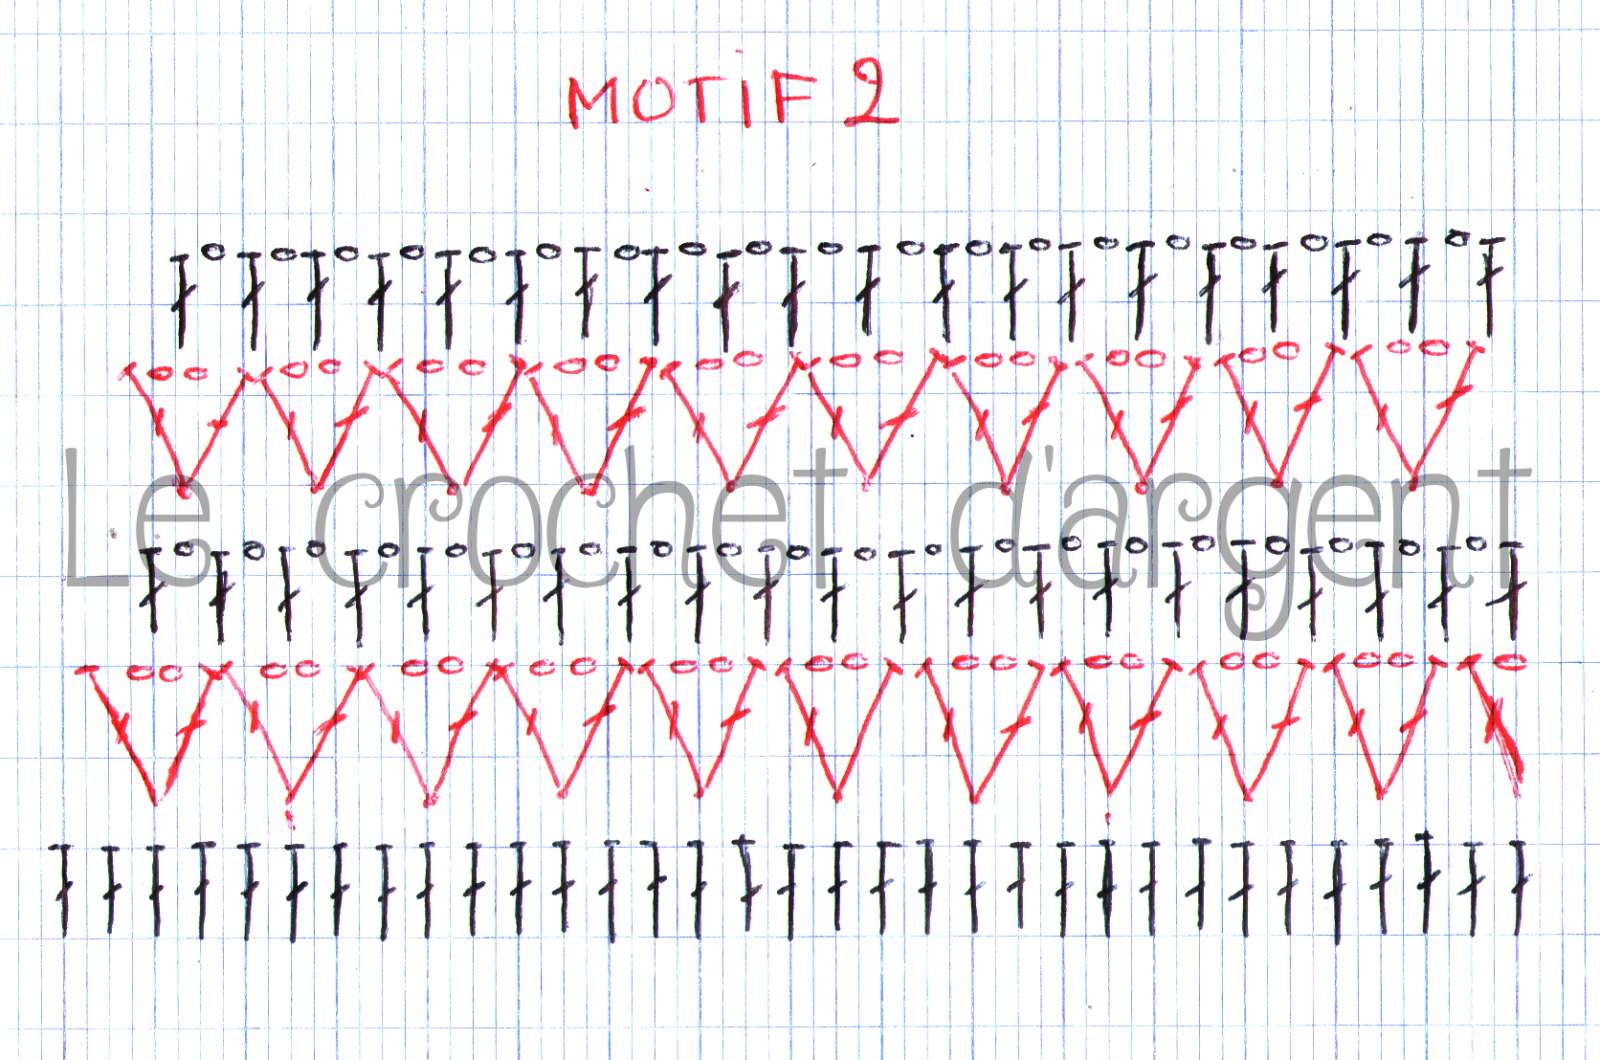 MOTIF 2
Le crochet d'argent